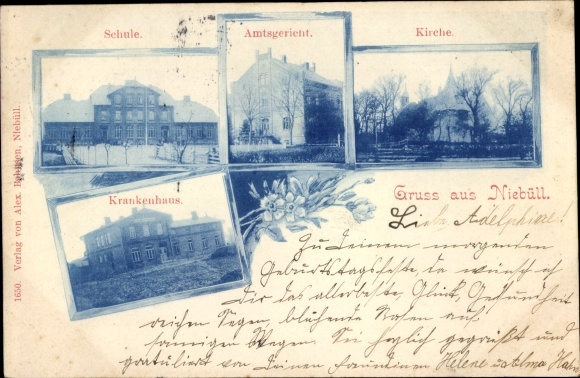 Schule.
Amtsgericht.
Kirche.
Krankenhaus.
Gruss aus Niebüll.
1650. Verlag von Alex. Niebüll.
Liebe Adelphine!
Zu Deinem morgenden
Geburtstagsfeste, da wünsch ich
Dir das allerbeste, Glück, Gesundheit
reichen Segen, blühende Rosen auf
sonnigen Wegen. Sei herzlich gegrüßt und
gratuliert von Deinen Freundinnen Helene u. Alma